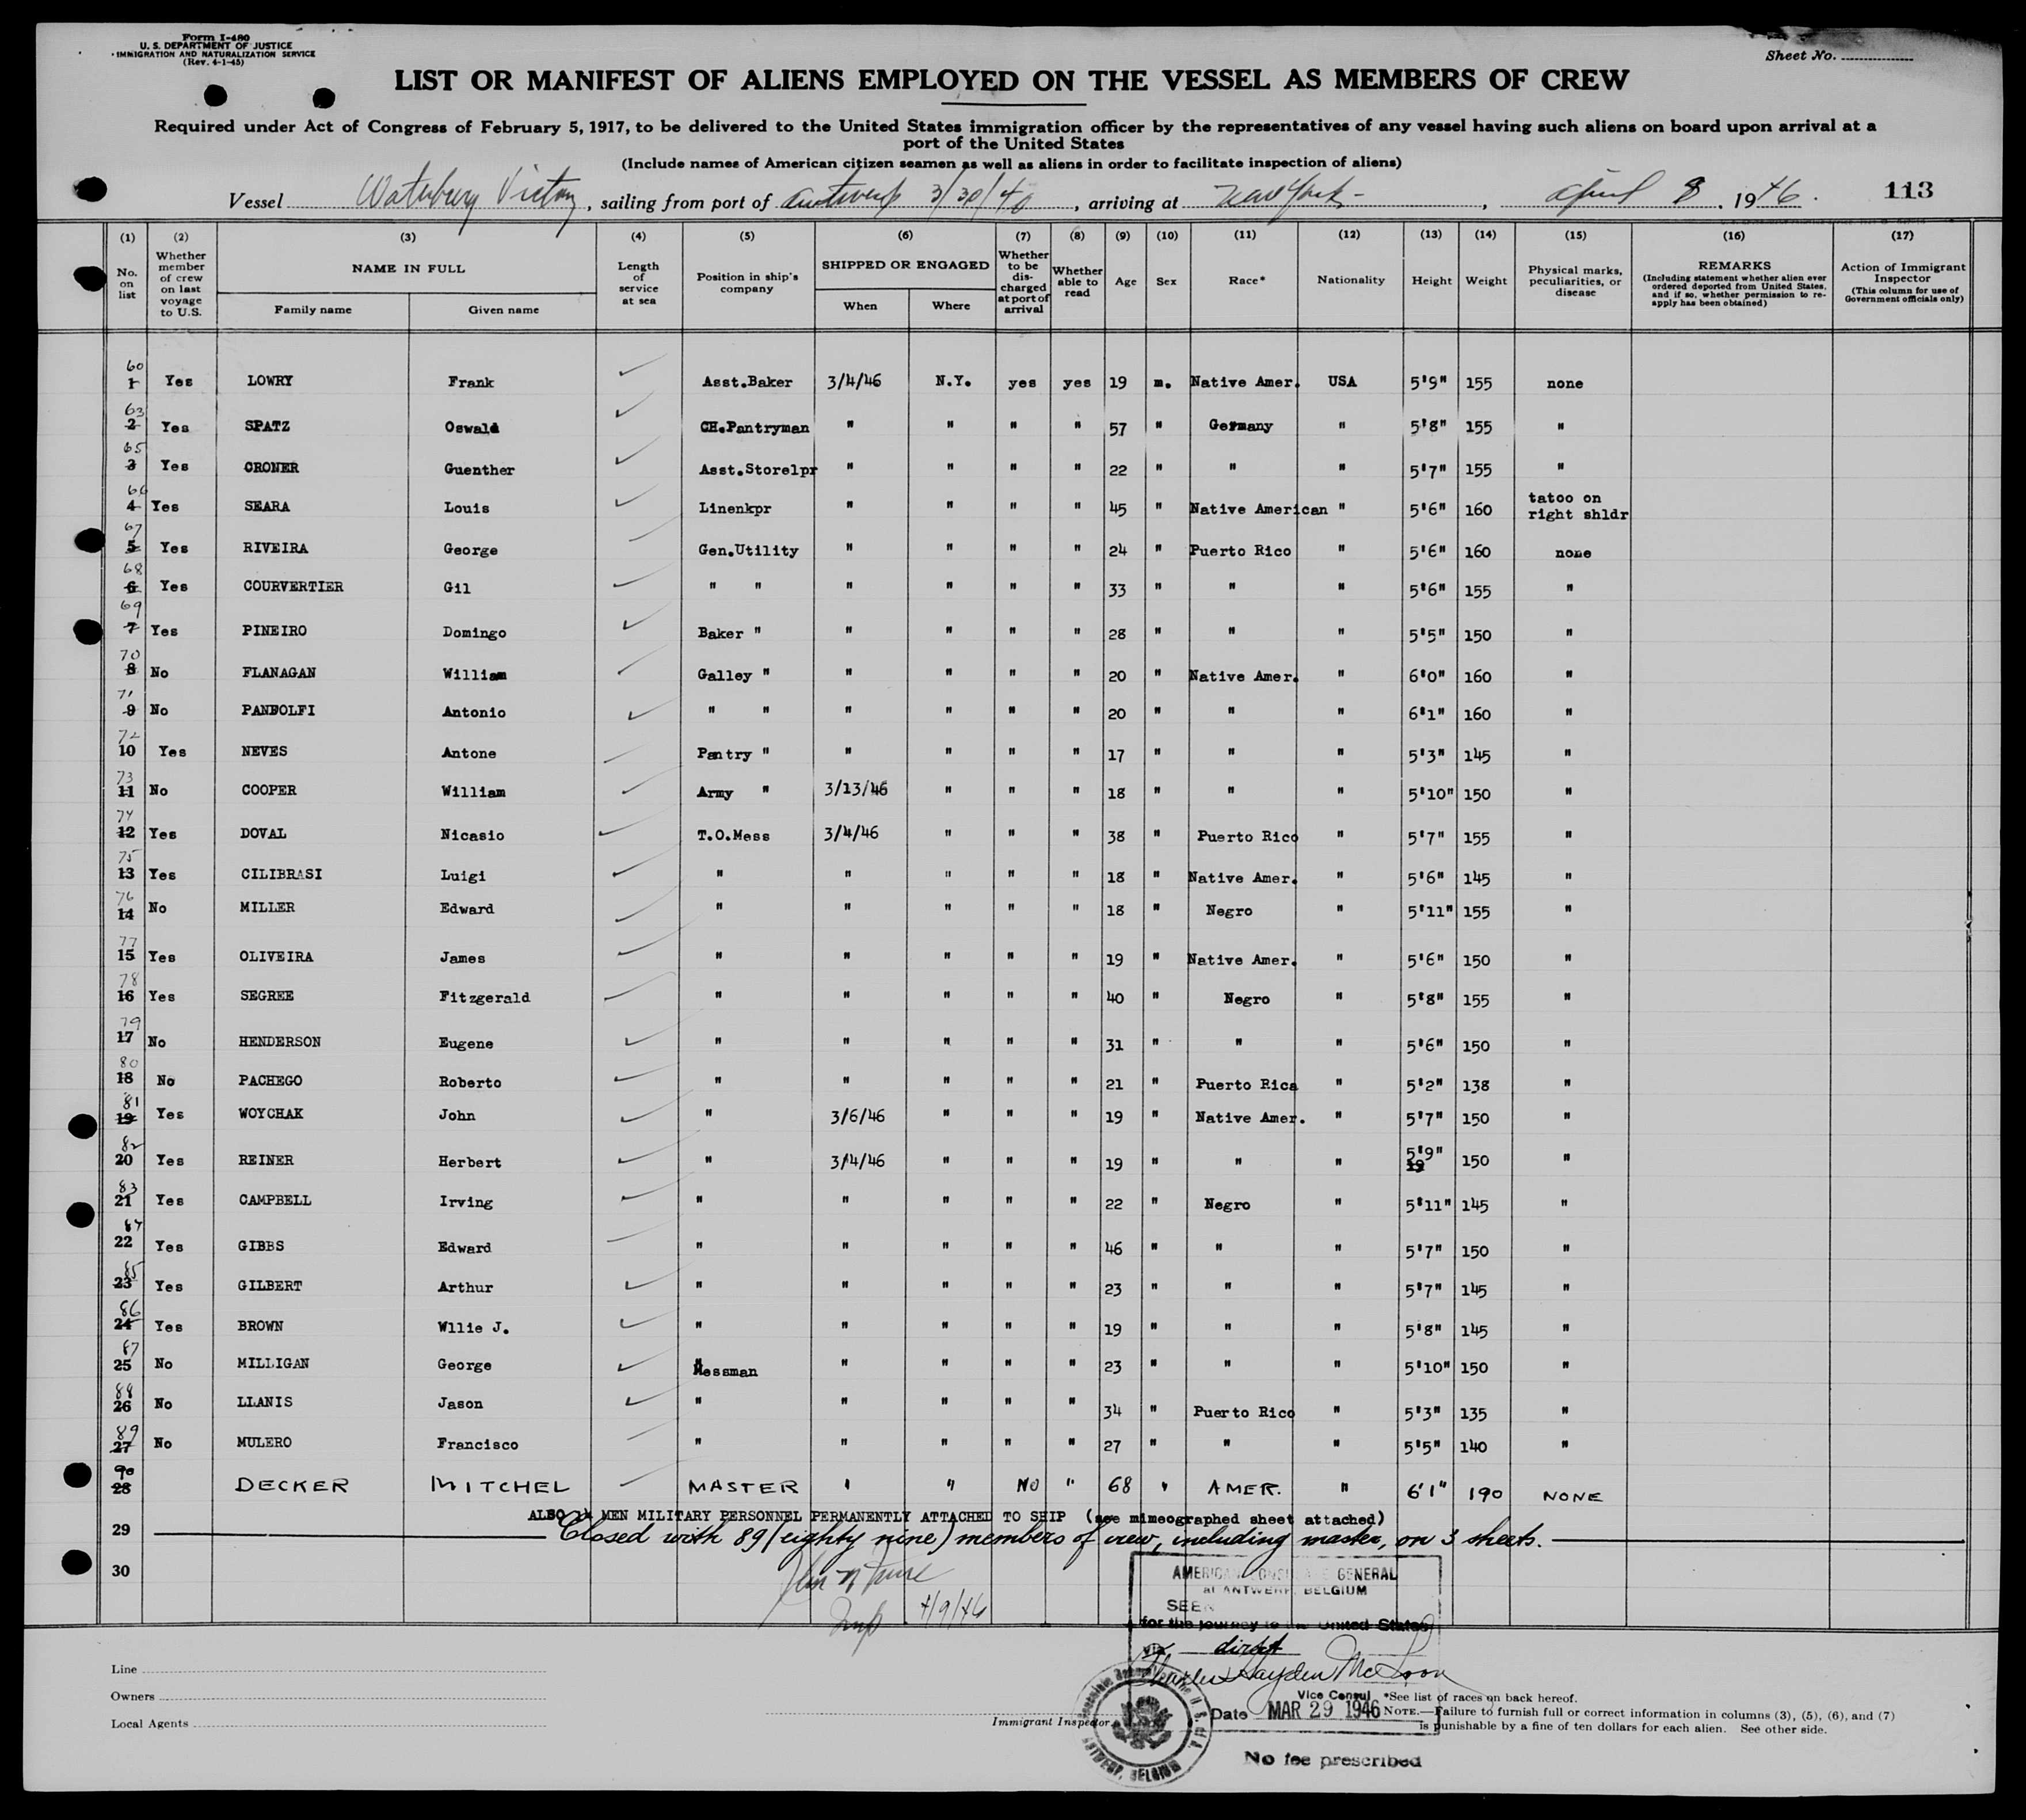 Form I-480
U. S. DEPARTMENT OF JUSTICE
IMMIGRATION AND NATURALIZATION SERVICE
(Rev. 4-1-45)
Sheet No.
LIST OR MANIFEST OF ALIENS EMPLOYED ON THE VESSEL AS MEMBERS OF CREW
Required under Act of Congress of February 5, 1917, to be delivered to the United States immigration officer by the representatives of any vessel having such aliens on board upon arrival at a
port of the United States
(Include names of American citizen seamen as well as aliens in order to facilitate inspection of aliens)
Vessel Waterbury Victory, sailing from port of Antwerp 3/30/46, arriving at New York, April 8, 1946. 113
(1) (2) (3) (4) (5) (6) (7) (8) (9) (10) (11) (12) (13) (14) (15) (16) (17)
No. on list
Whether member of crew on last voyage to U.S.
NAME IN FULL
Family name
Given name
Length of service at sea
Position in ship's company
SHIPPED OR ENGAGED
When
Where
Whether to be discharged at port of arrival
Whether able to read
Age
Sex
Race*
Nationality
Height
Weight
Physical marks, peculiarities, or disease
REMARKS
(Including statement whether alien ever ordered deported from United States, and if so, whether permission to re-apply has been obtained)
Action of Immigrant Inspector
(This column for use of Government officials only)
60 1 Yes LOWRY Frank Asst.Baker 3/4/46 N.Y. yes yes 19 m. Native Amer. USA 5'9" 155 none
63 2 Yes SPATZ Oswald CH.Pantryman " " " " 57 " Germany " 5'8" 155 "
65 3 Yes CRONER Guenther Asst.Storelpr " " " " 22 " " " 5'7" 155 "
66 4 Yes SEARA Louis Linenkpr " " " " 45 " Native American " 5'6" 160 tatoo on right shldr
67 5 Yes RIVEIRA George Gen.Utility " " " " 24 " Puerto Rico " 5'6" 160 none
68 6 Yes COURVERTIER Gil " " " " " " 33 " " " 5'6" 155 "
69 7 Yes PINEIRO Domingo Baker " " " " " 28 " " " 5'5" 150 "
70 8 No FLANAGAN William Galley " " " " " 20 " Native Amer. " 6'0" 160 "
71 9 No PANDOLFI Antonio " " " " " " 20 " " " 6'1" 160 "
72 10 Yes NEVES Antone Pantry " " " " " 17 " " " 5'3" 145 "
73 11 No COOPER William Army " 3/13/46 " " " 18 " " " 5'10" 150 "
74 12 Yes DOVAL Nicasio T.O.Mess 3/4/46 " " " 38 " Puerto Rico " 5'7" 155 "
75 13 Yes CILIBRASI Luigi " " " " " 18 " Native Amer. " 5'6" 145 "
76 14 No MILLER Edward " " " " " 18 " Negro " 5'11" 155 "
77 15 Yes OLIVEIRA James " " " " " 19 " Native Amer. " 5'6" 150 "
78 16 Yes SEGREE Fitzgerald " " " " " 40 " Negro " 5'8" 155 "
79 17 No HENDERSON Eugene " " " " " 31 " " " 5'6" 150 "
80 18 No PACHEGO Roberto " " " " " 21 " Puerto Rica " 5'2" 138 "
81 19 Yes WOYCHAK John " 3/6/46 " " " 19 " Native Amer. " 5'7" 150 "
82 20 Yes REINER Herbert " 3/4/46 " " " 19 " " " 5'9" 150 "
83 21 Yes CAMPBELL Irving " " " " " 22 " Negro " 5'11" 145 "
84 22 Yes GIBBS Edward " " " " " 46 " " " 5'7" 150 "
85 23 Yes GILBERT Arthur " " " " " 23 " " " 5'7" 145 "
86 24 Yes BROWN Wllie J. " " " " " 19 " " " 5'8" 145 "
87 25 No MILLIGAN George Messman " " " " 23 " " " 5'10" 150 "
88 26 No LLANIS Jason " " " " " 34 " Puerto Rico " 5'3" 135 "
89 27 No MULERO Francisco " " " " " 27 " " " 5'5" 140 "
90 28 DECKER MITCHEL MASTER " " NO " 68 " AMER. " 6'1" 190 NONE
ALSO MEN MILITARY PERSONNEL PERMANENTLY ATTACHED TO SHIP (see mimeographed sheet attached)
29 Closed with 89 (eighty nine) members of crew, including master, on 3 sheets.
30
4/9/46
AMERICAN CONSULATE GENERAL
at ANTWERP, BELGIUM
SEEN
for the journey to the United States
via direct
Hayden
Vice Consul
Date MAR 29 1946
ANTWERP, BELGIUM
No fee prescribed
Line
Owners
Local Agents
Immigrant Inspector
*See list of races on back hereof.
NOTE.—Failure to furnish full or correct information in columns (3), (5), (6), and (7)
is punishable by a fine of ten dollars for each alien. See other side.